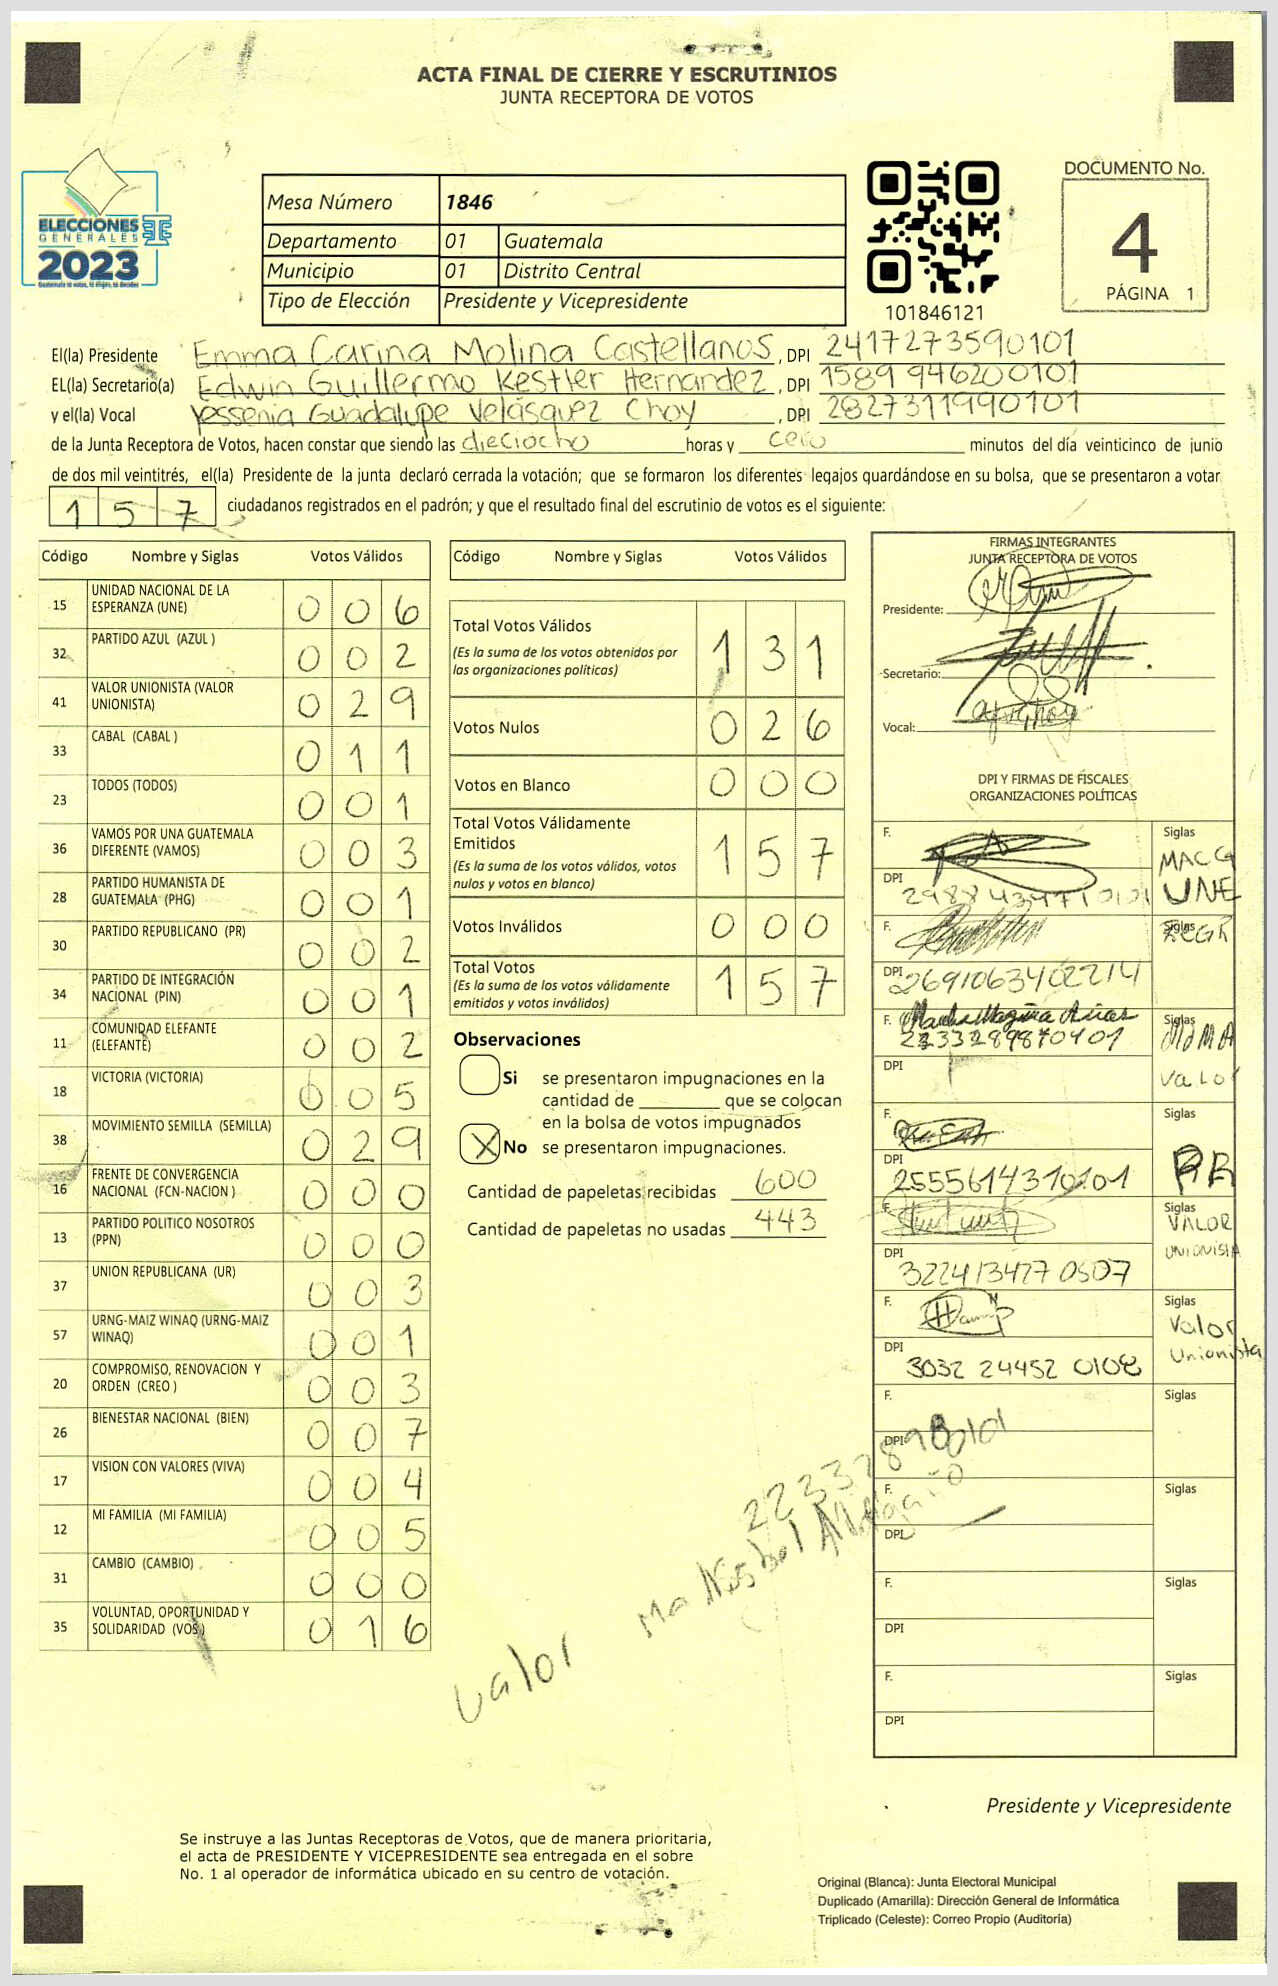 ACTA FINAL DE CIERRE Y ESCRUTINIOS
JUNTA RECEPTORA DE VOTOS
ELECCIONES
GENERALES
2023
Mesa Número 1846
Departamento 01 Guatemala
Municipio 01 Distrito Central
Tipo de Elección Presidente y Vicepresidente
101846121
DOCUMENTO No.
4
PÁGINA 1
El(la) Presidente Emma Carina Molina Castellanos, DPI 2417273590101
EL(la) Secretario(a) Edwin Guillermo Kestler Hernandez, DPI 1589 946200101
y el(la) Vocal Yessenia Guadalupe Velásquez Choy, DPI 2827311990101
de la Junta Receptora de Votos, hacen constar que siendo las dieciocho horas y cero minutos del día veinticinco de junio
de dos mil veintitrés, el(la) Presidente de la junta declaró cerrada la votación; que se formaron los diferentes legajos guardándose en su bolsa, que se presentaron a votar
1 5 7 ciudadanos registrados en el padrón; y que el resultado final del escrutinio de votos es el siguiente:
Código Nombre y Siglas Votos Válidos
15 UNIDAD NACIONAL DE LA
ESPERANZA (UNE) 0 0 6
32 PARTIDO AZUL (AZUL ) 0 0 2
41 VALOR UNIONISTA (VALOR
UNIONISTA) 0 2 9
33 CABAL (CABAL ) 0 1 1
23 TODOS (TODOS) 0 0 1
36 VAMOS POR UNA GUATEMALA
DIFERENTE (VAMOS) 0 0 3
28 PARTIDO HUMANISTA DE
GUATEMALA (PHG) 0 0 1
30 PARTIDO REPUBLICANO (PR) 0 0 2
34 PARTIDO DE INTEGRACIÓN
NACIONAL (PIN) 0 0 1
11 COMUNIDAD ELEFANTE
(ELEFANTE) 0 0 2
18 VICTORIA (VICTORIA) 0 0 5
38 MOVIMIENTO SEMILLA (SEMILLA) 0 2 9
16 FRENTE DE CONVERGENCIA
NACIONAL (FCN-NACION ) 0 0 0
13 PARTIDO POLITICO NOSOTROS
(PPN) 0 0 0
37 UNION REPUBLICANA (UR) 0 0 3
57 URNG-MAIZ WINAQ (URNG-MAIZ
WINAQ) 0 0 1
20 COMPROMISO, RENOVACION Y
ORDEN (CREO ) 0 0 3
26 BIENESTAR NACIONAL (BIEN) 0 0 7
17 VISION CON VALORES (VIVA) 0 0 4
12 MI FAMILIA (MI FAMILIA) 0 0 5
31 CAMBIO (CAMBIO) 0 0 0
35 VOLUNTAD, OPORTUNIDAD Y
SOLIDARIDAD (VOS) 0 1 6
Código Nombre y Siglas Votos Válidos
Total Votos Válidos 1 3 1
(Es la suma de los votos obtenidos por
las organizaciones políticas)
Votos Nulos 0 2 6
Votos en Blanco 0 0 0
Total Votos Válidamente
Emitidos 1 5 7
(Es la suma de los votos válidos, votos
nulos y votos en blanco)
Votos Inválidos 0 0 0
Total Votos 1 5 7
(Es la suma de los votos válidamente
emitidos y votos inválidos)
Observaciones
Si se presentaron impugnaciones en la
cantidad de ________ que se colocan
en la bolsa de votos impugnados
X No se presentaron impugnaciones.
Cantidad de papeletas recibidas 600
Cantidad de papeletas no usadas 443
FIRMAS INTEGRANTES
JUNTA RECEPTORA DE VOTOS
Presidente:
Secretario:
Vocal:
DPI Y FIRMAS DE FISCALES
ORGANIZACIONES POLÍTICAS
F. Siglas
MACG
DPI UNE
F. Siglas
DPI 2691063402214
F. Siglas
DPI Valor
F. Siglas
DPI
2555614310101
F. Siglas
VALOR
UNIONISTA
DPI
3224134770507
F. Siglas
Valor
Unionista
DPI
3032 24452 0108
F. Siglas
DPI
F. Siglas
DPI
F. Siglas
DPI
F. Siglas
DPI
valor
Presidente y Vicepresidente
Se instruye a las Juntas Receptoras de Votos, que de manera prioritaria,
el acta de PRESIDENTE Y VICEPRESIDENTE sea entregada en el sobre
No. 1 al operador de informática ubicado en su centro de votación.
Original (Blanca): Junta Electoral Municipal
Duplicado (Amarilla): Dirección General de Informática
Triplicado (Celeste): Correo Propio (Auditoría)